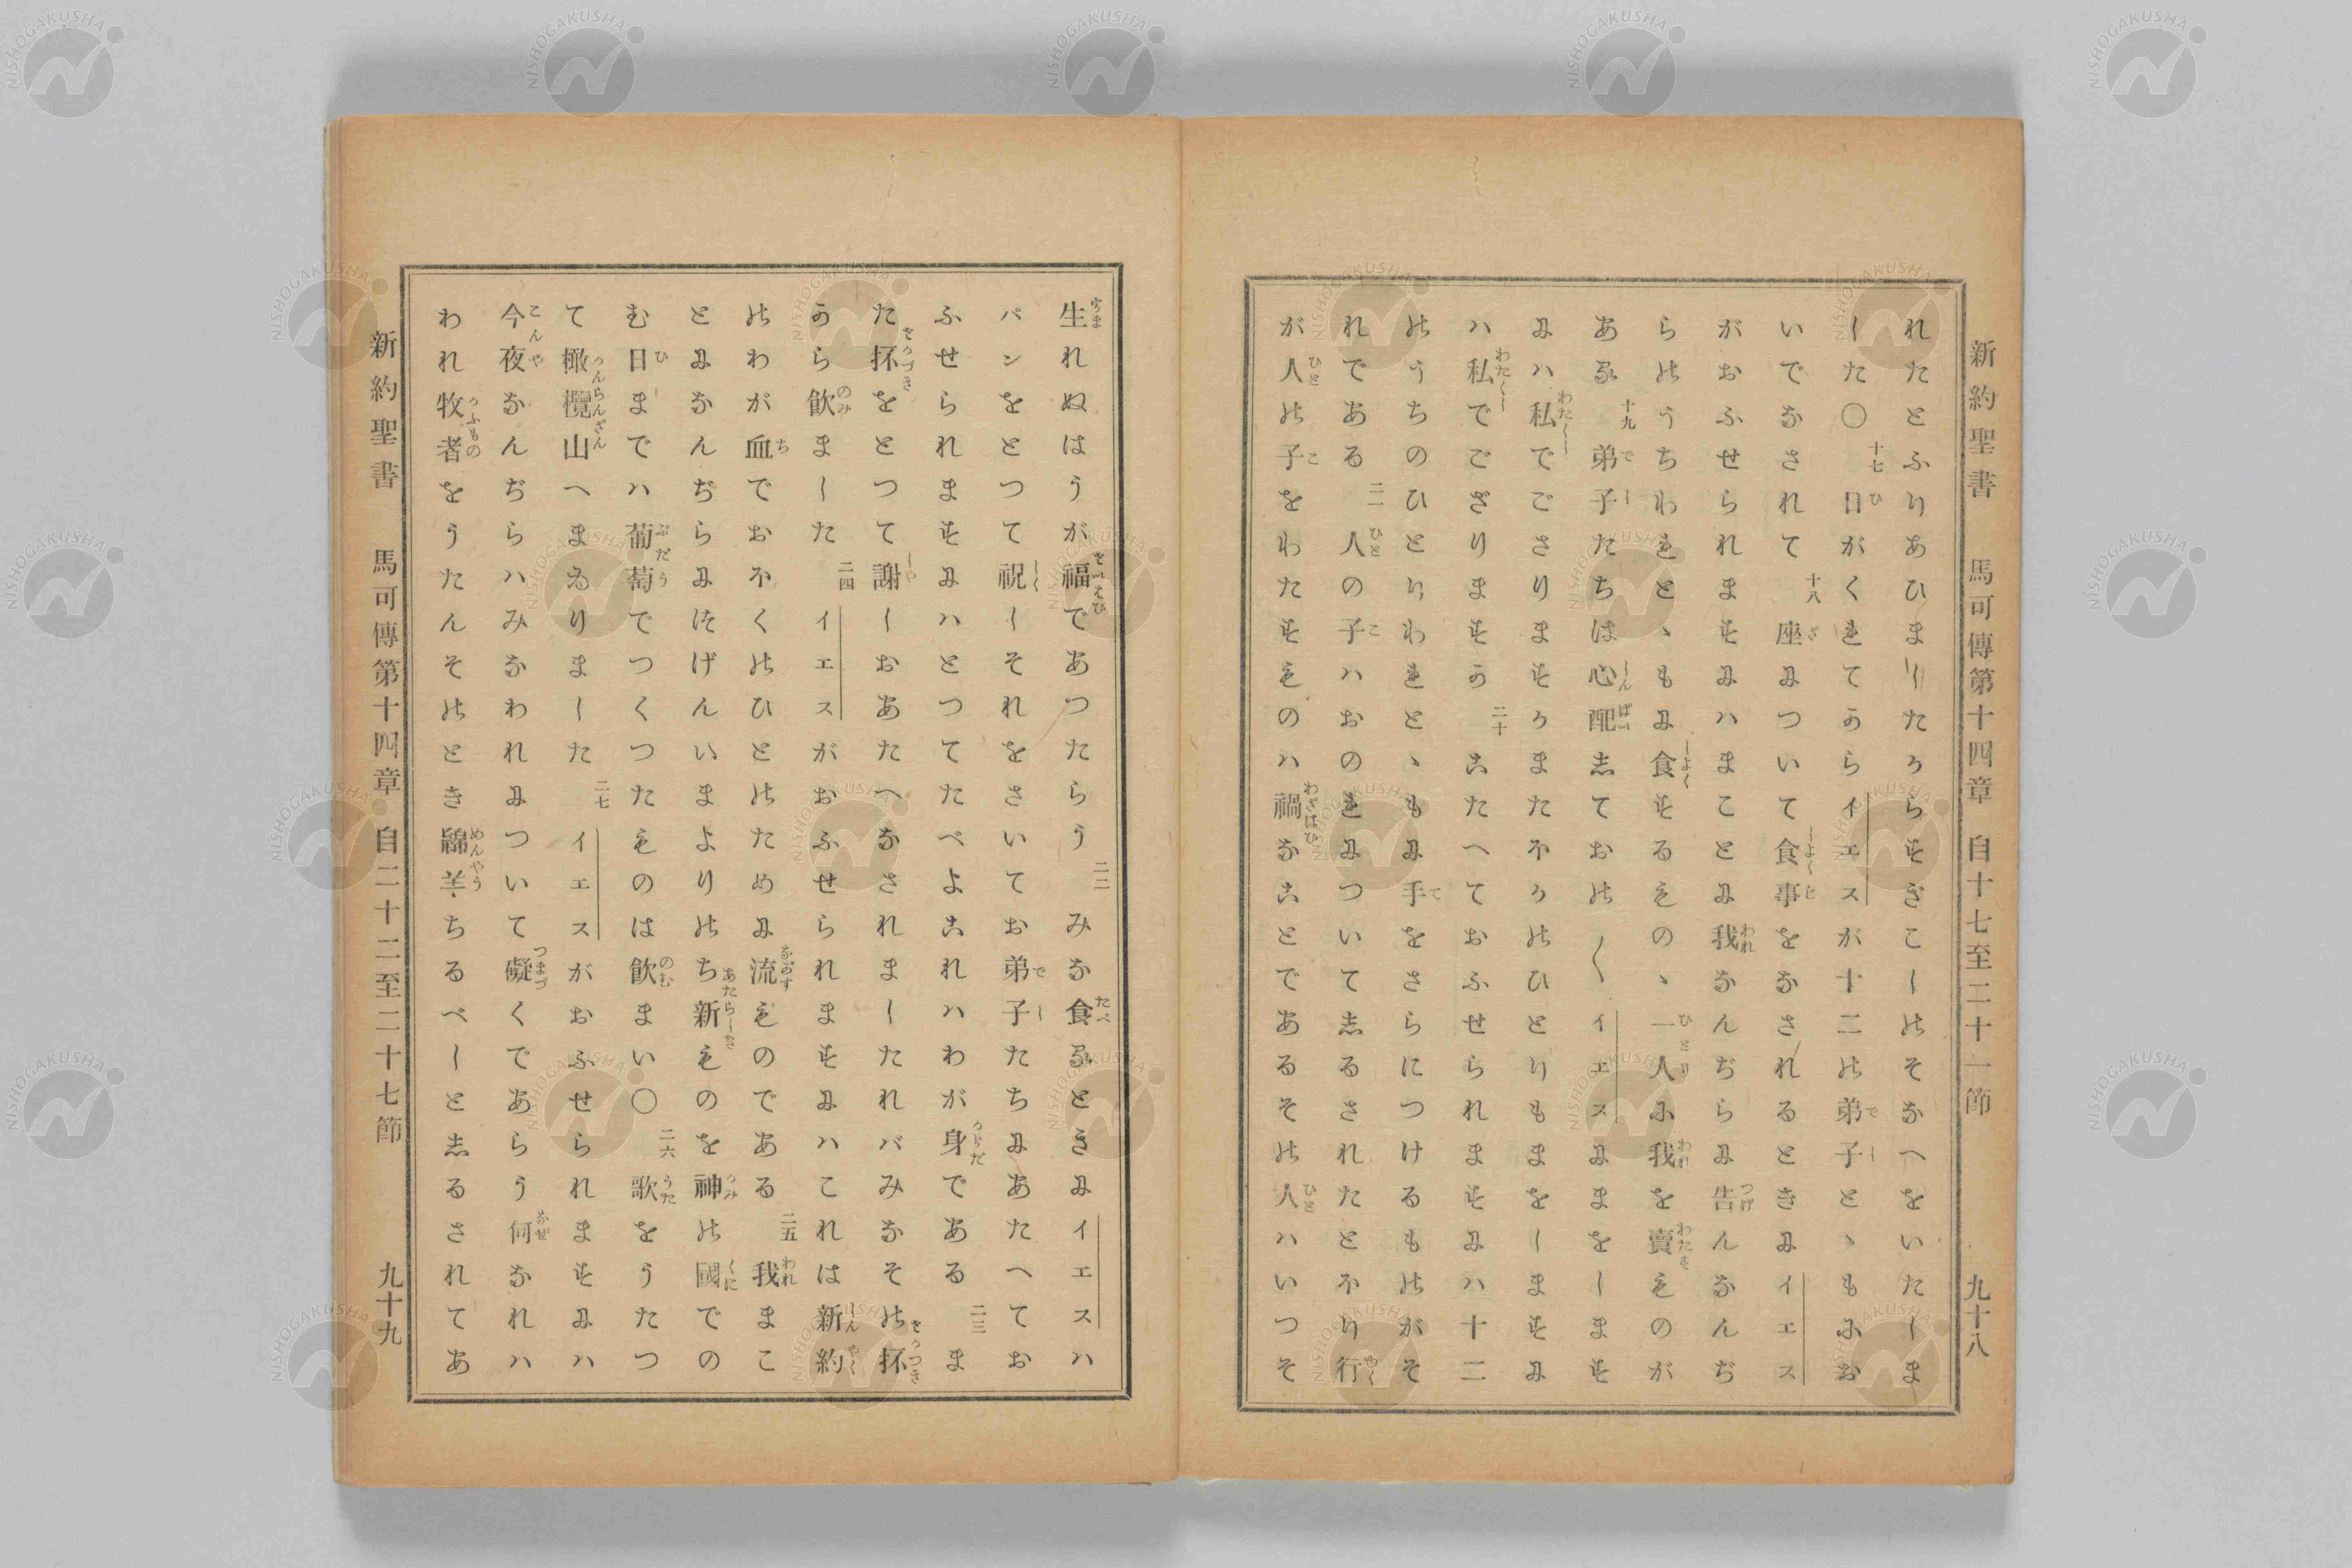 新約聖書　馬可傳第十四章　自十七至二十一節　九十八
れたとふりあひましたからすぎこしのそなへをいたしま
した〇十七日がくれてからイエスが十二の弟子とゝもにお
いでなされて十八座について食事をなされるときにイエス
がおふせられますにハまことに我なんぢらに告んなんぢ
らのうちわれとゝもに食するものゝ一人に我を賣ものが
ある十九弟子たちは心配しておの〱イエスにまをします
にハ私でごさりますかまたほかのひとりもまをしますに
ハ私でござりますか二十こたへておふせられますにハ十二
のうちのひとりわれとゝもに手をさらにつけるものがそ
れである二一人の子ハおのれについてしるされたとほり行
が人の子をわたすものハ禍なことであるその人ハいつそ
生れぬはうが福であつたらう二二みな食るときにイエスハ
パンをとつて祝しそれをさいてお弟子たちにあたへてお
ふせられますにハとつてたべよこれハわが身である二三ま
た抔をとつて謝しおあたへなされましたれバみなその抔
から飲ました二四イエスがおふせられますにハこれは新約
のわが血でおほくのひとのために流ものである二五我まこ
とになんぢらにつげんいまよりのち新ものを神の國での
む日までハ葡萄でつくつたものは飲まい〇二六歌をうたつ
て橄欖山へまゐりました二七イエスがおふせられますにハ
今夜なんぢらハみなわれについて礙くであらう何なれハ
われ牧者をうたんそのとき緜羊ちるべしとしるされてあ
新約聖書　馬可傳第十四章　自二十二至二十七節　九十九